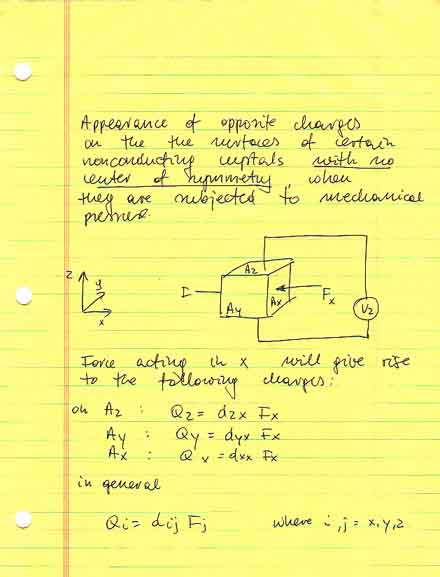 Appearance of opposite charges
on the the surfaces of certain
nonconducting crystals with no
center of symmetry, when
they are subjected to mechanical
pressure.
z
y
x
I
Az
Ay
Ax
Fx
Vz
Force acting in x will give rise
to the following charges:
on Az : Qz = dzx Fx
Ay : Qy = dyx Fx
Ax : Qx = dxx Fx
in general
Qi = dij Fj where i, j = x, y, z